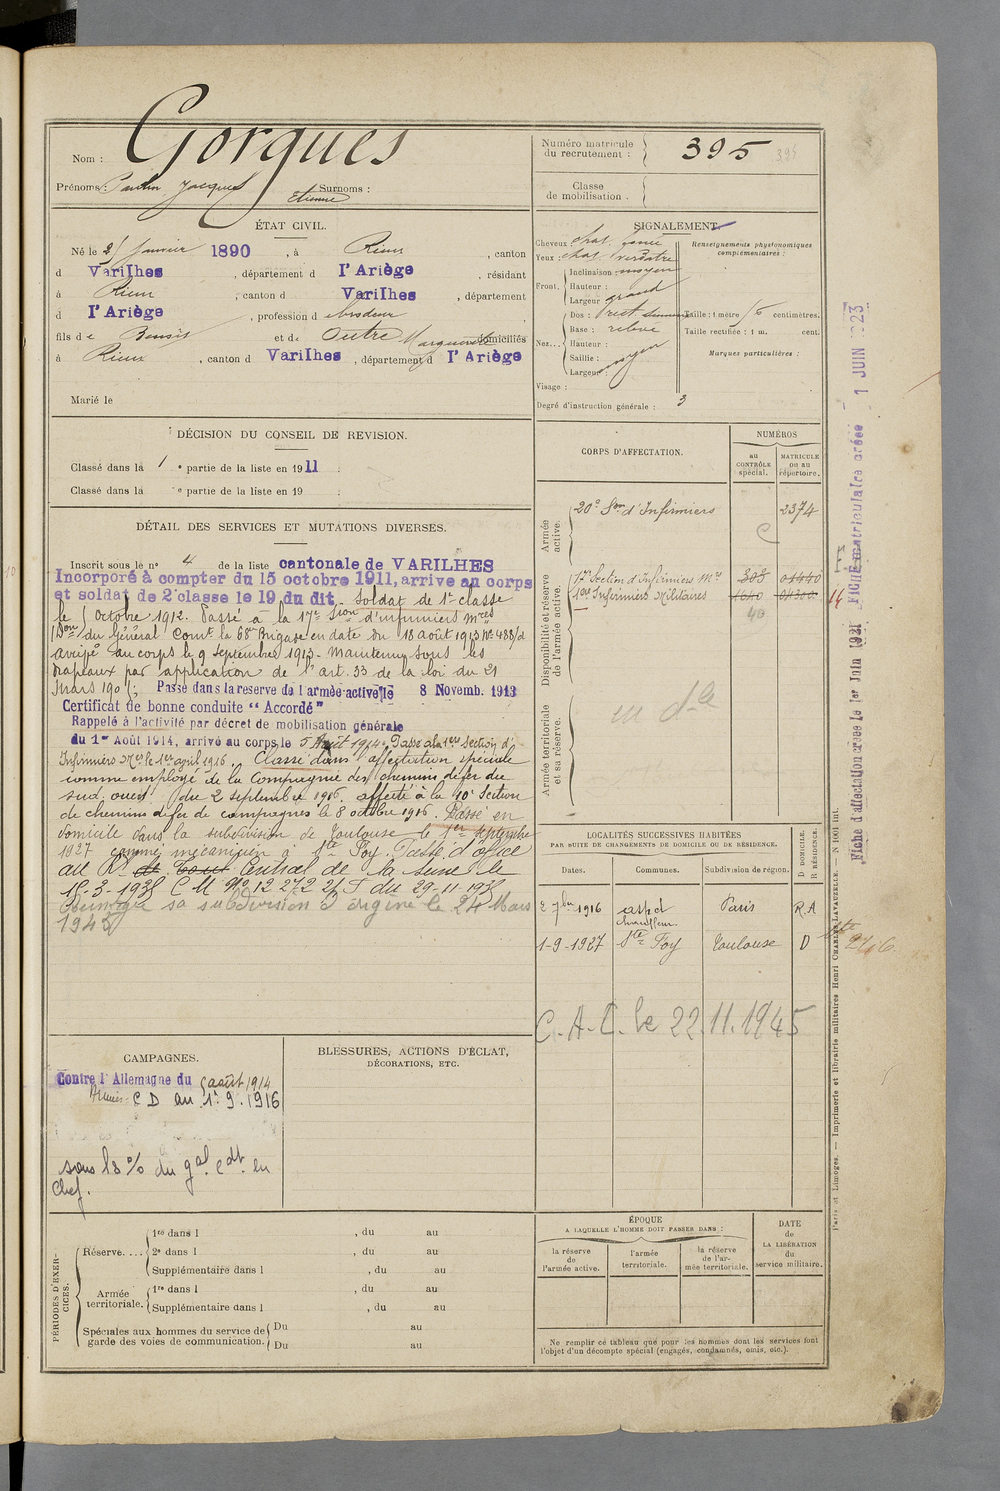 Nom : Gorgues
Prénoms : Jacques Etienne Surnoms :
Numéro matricule du recrutement : 395 395
Classe de mobilisation :
ÉTAT CIVIL.
Né le janvier 1890, à Rieux, canton
d VarilHes, département d l'Ariège, résidant
à Rieux, canton d VarilHes, département
d l'Ariège, profession d
fils de et de Marguerite domiciliés
à Rieux, canton d VarilHes, département d l'Ariège
Marié le
SIGNALEMENT.
Cheveux chat. foncé
Yeux chat. verdâtre
Front. Inclinaison moyen
Hauteur :
Largeur grand
Nez... Dos : rect.
Base : relevé
Hauteur :
Saillie : moyen
Largeur :
Visage :
Degré d'instruction générale : 3
Renseignements physionomiques complémentaires :
Taille : 1 mètre centimètres.
Taille rectifiée : 1 m. cent.
Marques particulières :
DÉCISION DU CONSEIL DE REVISION.
Classé dans la 1 e partie de la liste en 1911 ;
Classé dans la e partie de la liste en 19 ;
DÉTAIL DES SERVICES ET MUTATIONS DIVERSES.
Inscrit sous le n° 4 de la liste cantonale de VARILHES
Incorporé à compter du 15 octobre 1911, arrive au corps
et soldat de 2e classe le 19 du dit. Soldat de 1e classe
le octobre 1912. Passé à la 17e Son d'infirmiers mres
(Don du Général Comt la 68e Brigade en date du 18 août 1913 No 488/d
arrivé au corps le 9 septembre 1913. Maintenu sous les
drapeaux par application de l'art. 33 de la loi du 21
mars 1905; Passé dans la reserve de l'armée active le 8 Novemb. 1913
Certificat de bonne conduite "Accordé"
Rappelé à l'activité par décret de mobilisation générale
du 1er Août 1914, arrivé au corps le 5 Août 1914. Passé à la 1ere Section d'
Infirmiers Mres le 1er avril 1916. Classé dans affectation spéciale
comme employé de la Compagnie des chemins de fer du
sud-ouest du 2 septembre 1916. affecté à la 10e Section
de chemins de fer de campagnes le 8 octobre 1916. Passé en
domicile dans la subdivision de Toulouse le 1er septembre
1927 comme mécanicien à Ste Foy. Passé d'office
au Rt Central de la Seine le
15-3-1938 C M No 12272 du 29-11-1938
sa subdivision d'origine le 24 Mars
1943
CORPS D'AFFECTATION.
NUMÉROS
AU CONTRÔLE spécial.
MATRICULE ou au répertoire.
Armée active.
20e Son d'Infirmiers 2374
Disponibilité et réserve de l'armée active.
17e Section d'Infirmiers Mres 303 01440
1ere Infirmiers Militaires 1640 01300
40
14
Armée territoriale et sa réserve.
LOCALITÉS SUCCESSIVES HABITÉES
PAR SUITE DE CHANGEMENTS DE DOMICILE OU DE RÉSIDENCE.
Dates. Communes. Subdivision de région. D DOMICILE. R RÉSIDENCE.
2 7bre 1916 chauffeur Paris R.A
1-9-1927 Ste Foy Toulouse D
C.A.C. le 22.11.1945
CAMPAGNES.
Contre l'Allemagne du 5 août 1914
C D au 1.9.1916
sous le % du gal cdt en
Chef.
BLESSURES, ACTIONS D'ÉCLAT,
DÉCORATIONS, ETC.
PÉRIODES D'EXERCICES.
Réserve....
1re dans l , du au
2e dans l , du au
Supplémentaire dans l , du au
Armée territoriale.
1re dans l , du au
Supplémentaire dans l , du au
Spéciales aux hommes du service de garde des voies de communication.
Du au
Du au
ÉPOQUE
A LAQUELLE L'HOMME DOIT PASSER DANS :
la réserve de l'armée active.
l'armée territoriale.
la réserve de l'armée territoriale.
DATE de LA LIBÉRATION du service militaire.
Ne remplir ce tableau que pour les hommes dont les services font
l'objet d'un décompte spécial (engagés, condamnés, omis, etc.).
Paris et Limoges. — Imprimerie et librairie militaires Henri CHARLES-LAVAUZELLE. — N° 1001 int.
Fiche d'affectation créée le 1er Juin 1921
Fiche matriculaire créée 1 JUIN 1923